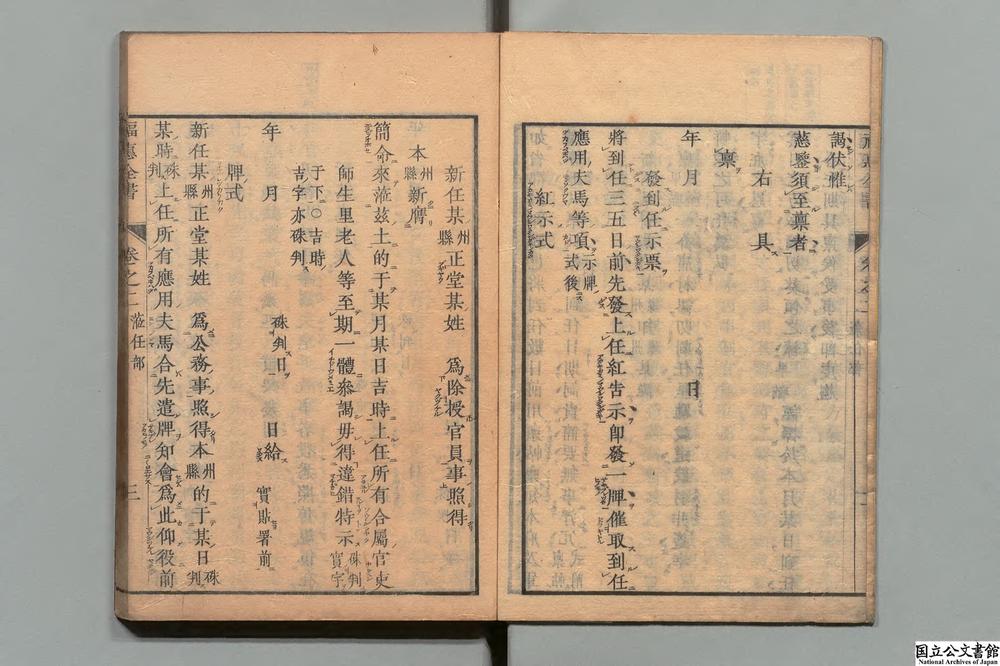 謁伏惟
慈鑒須至禀者
右具
禀
年月 日
發到任示票
將到任三五日前先發上任紅告示即發一牌催取到任
應用夫馬等項示牌式後
紅示式
新任某州縣正堂某姓 為除授官員事照得
本州縣新膺
簡命來蒞茲土的于某月某日吉時上任所有合屬官吏
師生里老人等至期一體參謁毋得違錯特示硃判實字
于下○吉時
吉字亦硃判
年 月 硃判日 日給 實貼署前
牌式
新任某州縣正堂某姓 為公務事照得本州縣的于某日硃判
某時硃判上任所有應用夫馬合先遣牌知會為此仰役前
福惠全書 卷之二 蒞任部 三
国立公文書館
National Archives of Japan